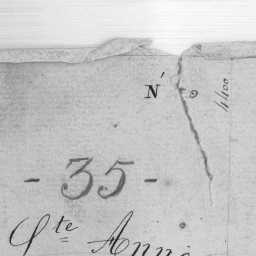 N'
4400
- 35 -
Ste Anne